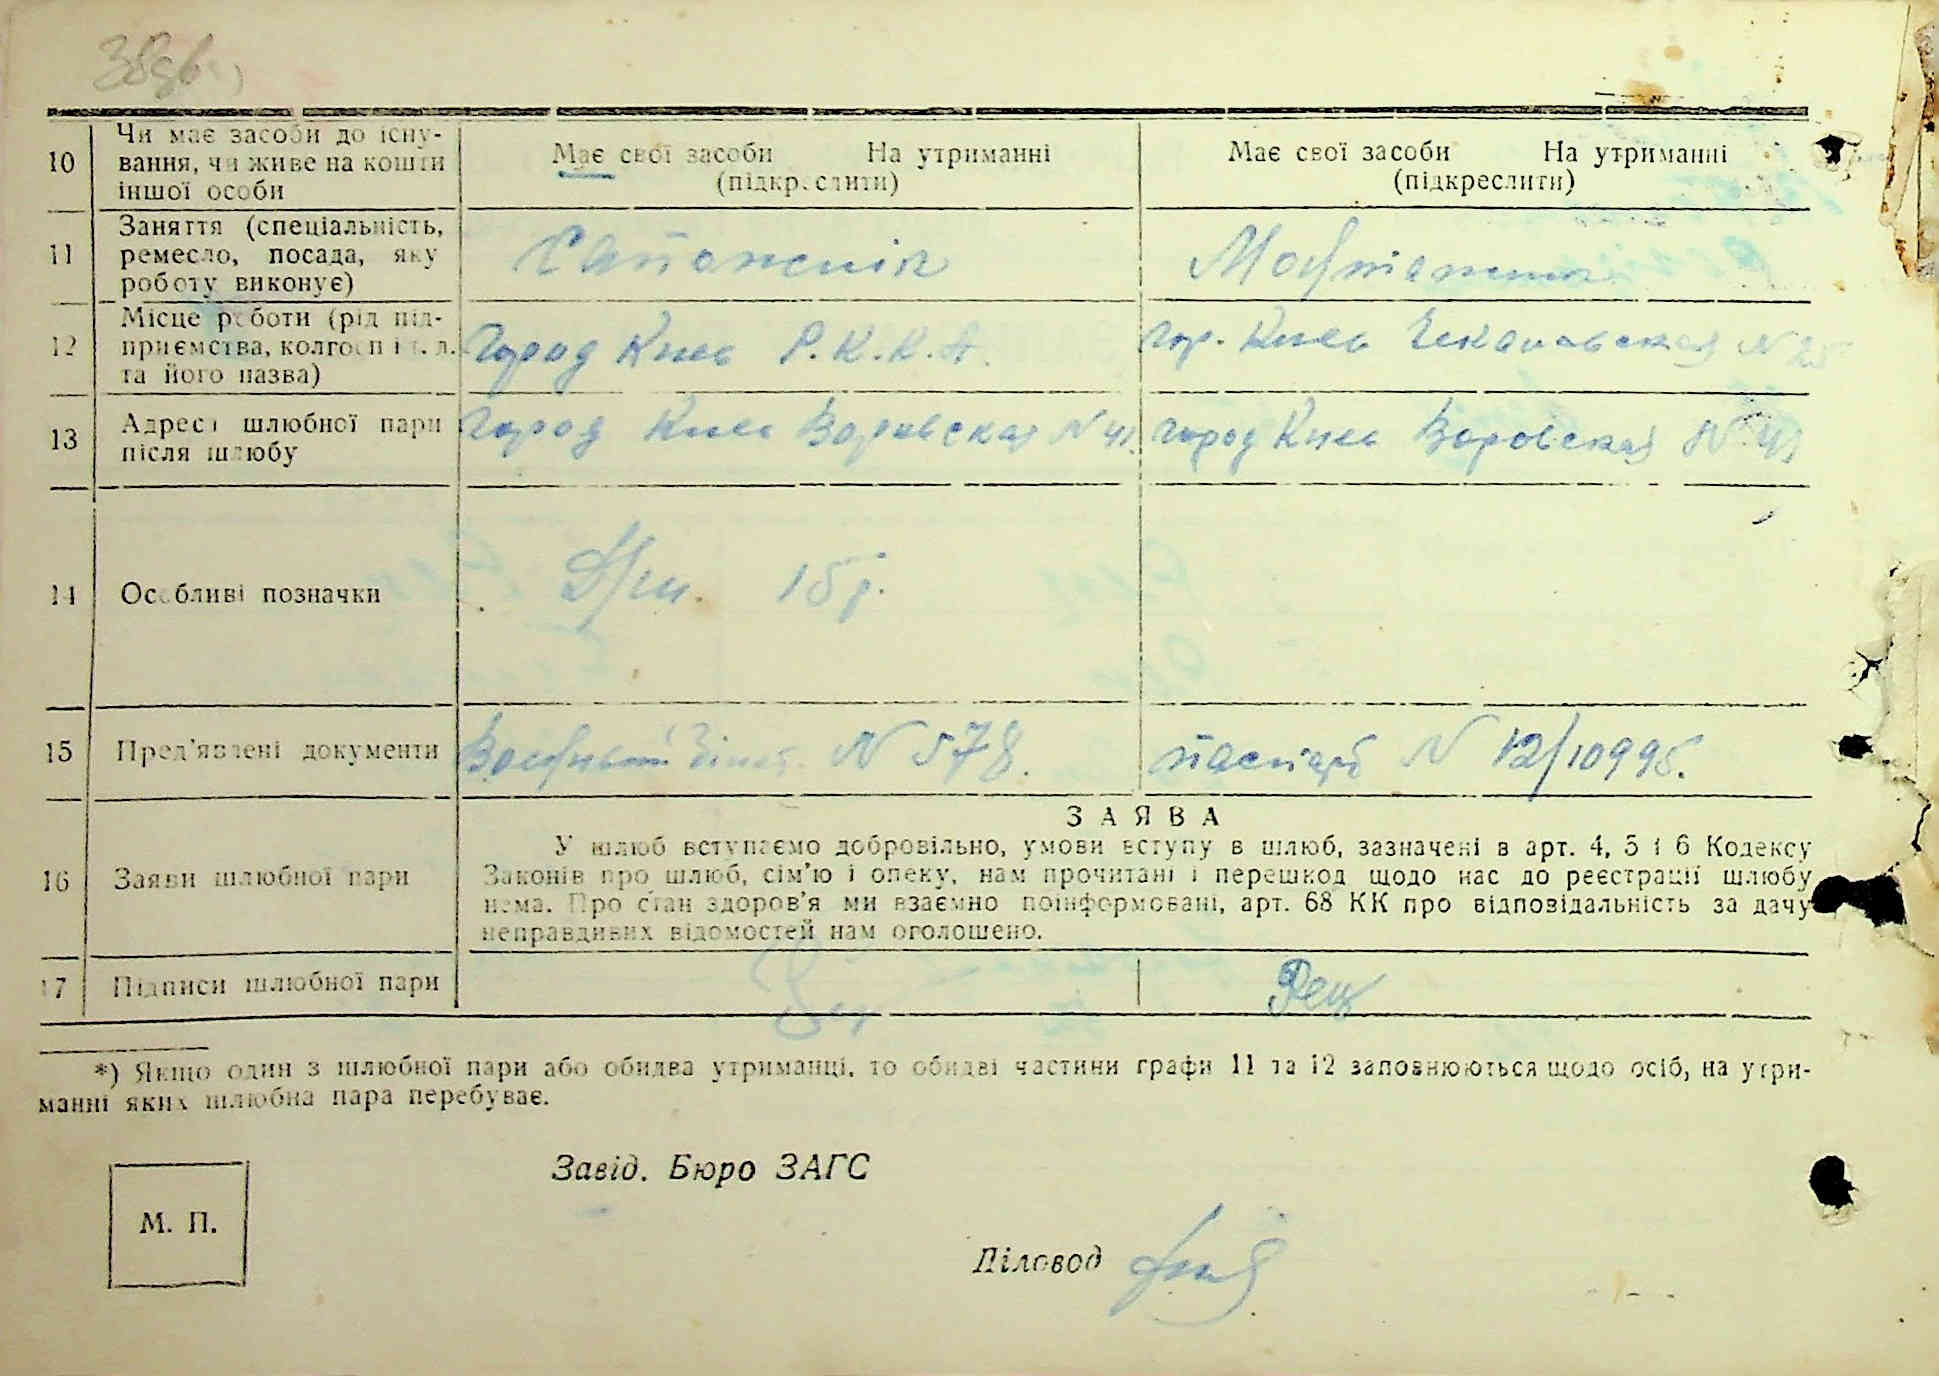 10
Чи має засоби до існу-
вання, чи живе на кошти
іншої особи
Має свої засоби На утриманні
(підкреслити)
Має свої засоби На утриманні
(підкреслити)
11
Заняття (спеціальність,
ремесло, посада, яку
роботу виконує)
12
Місце роботи (рід під-
приємства, колгосп і т. д.
та його назва)
Город Киев Р.К.К.А.
гор. Киев N 25
13
Адреса шлюбної пари
після шлюбу
Город Киев Воровская N 41
город Киев Воровская N 41
14
Особливі позначки
15 р.
15
Пред'явлені документи
N 578.
паспорт N 12/10995.
16
Заяви шлюбної пари
ЗАЯВА
У шлюб вступаємо добровільно, умови вступу в шлюб, зазначені в арт. 4, 5 і 6 Кодексу
Законів про шлюб, сім'ю і опеку, нам прочитані і перешкод щодо нас до реєстрації шлюбу
нема. Про стан здоров'я ми взаємно поінформовані, арт. 68 КК про відповідальність за дачу
неправдивих відомостей нам оголошено.
17
Підписи шлюбної пари
*) Якщо один з шлюбної пари або обидва утриманці, то обидві частини графи 11 та 12 заповнюються щодо осіб, на утри-
манні яких шлюбна пара перебуває.
Завід. Бюро ЗАГС
М. П.
Діловод